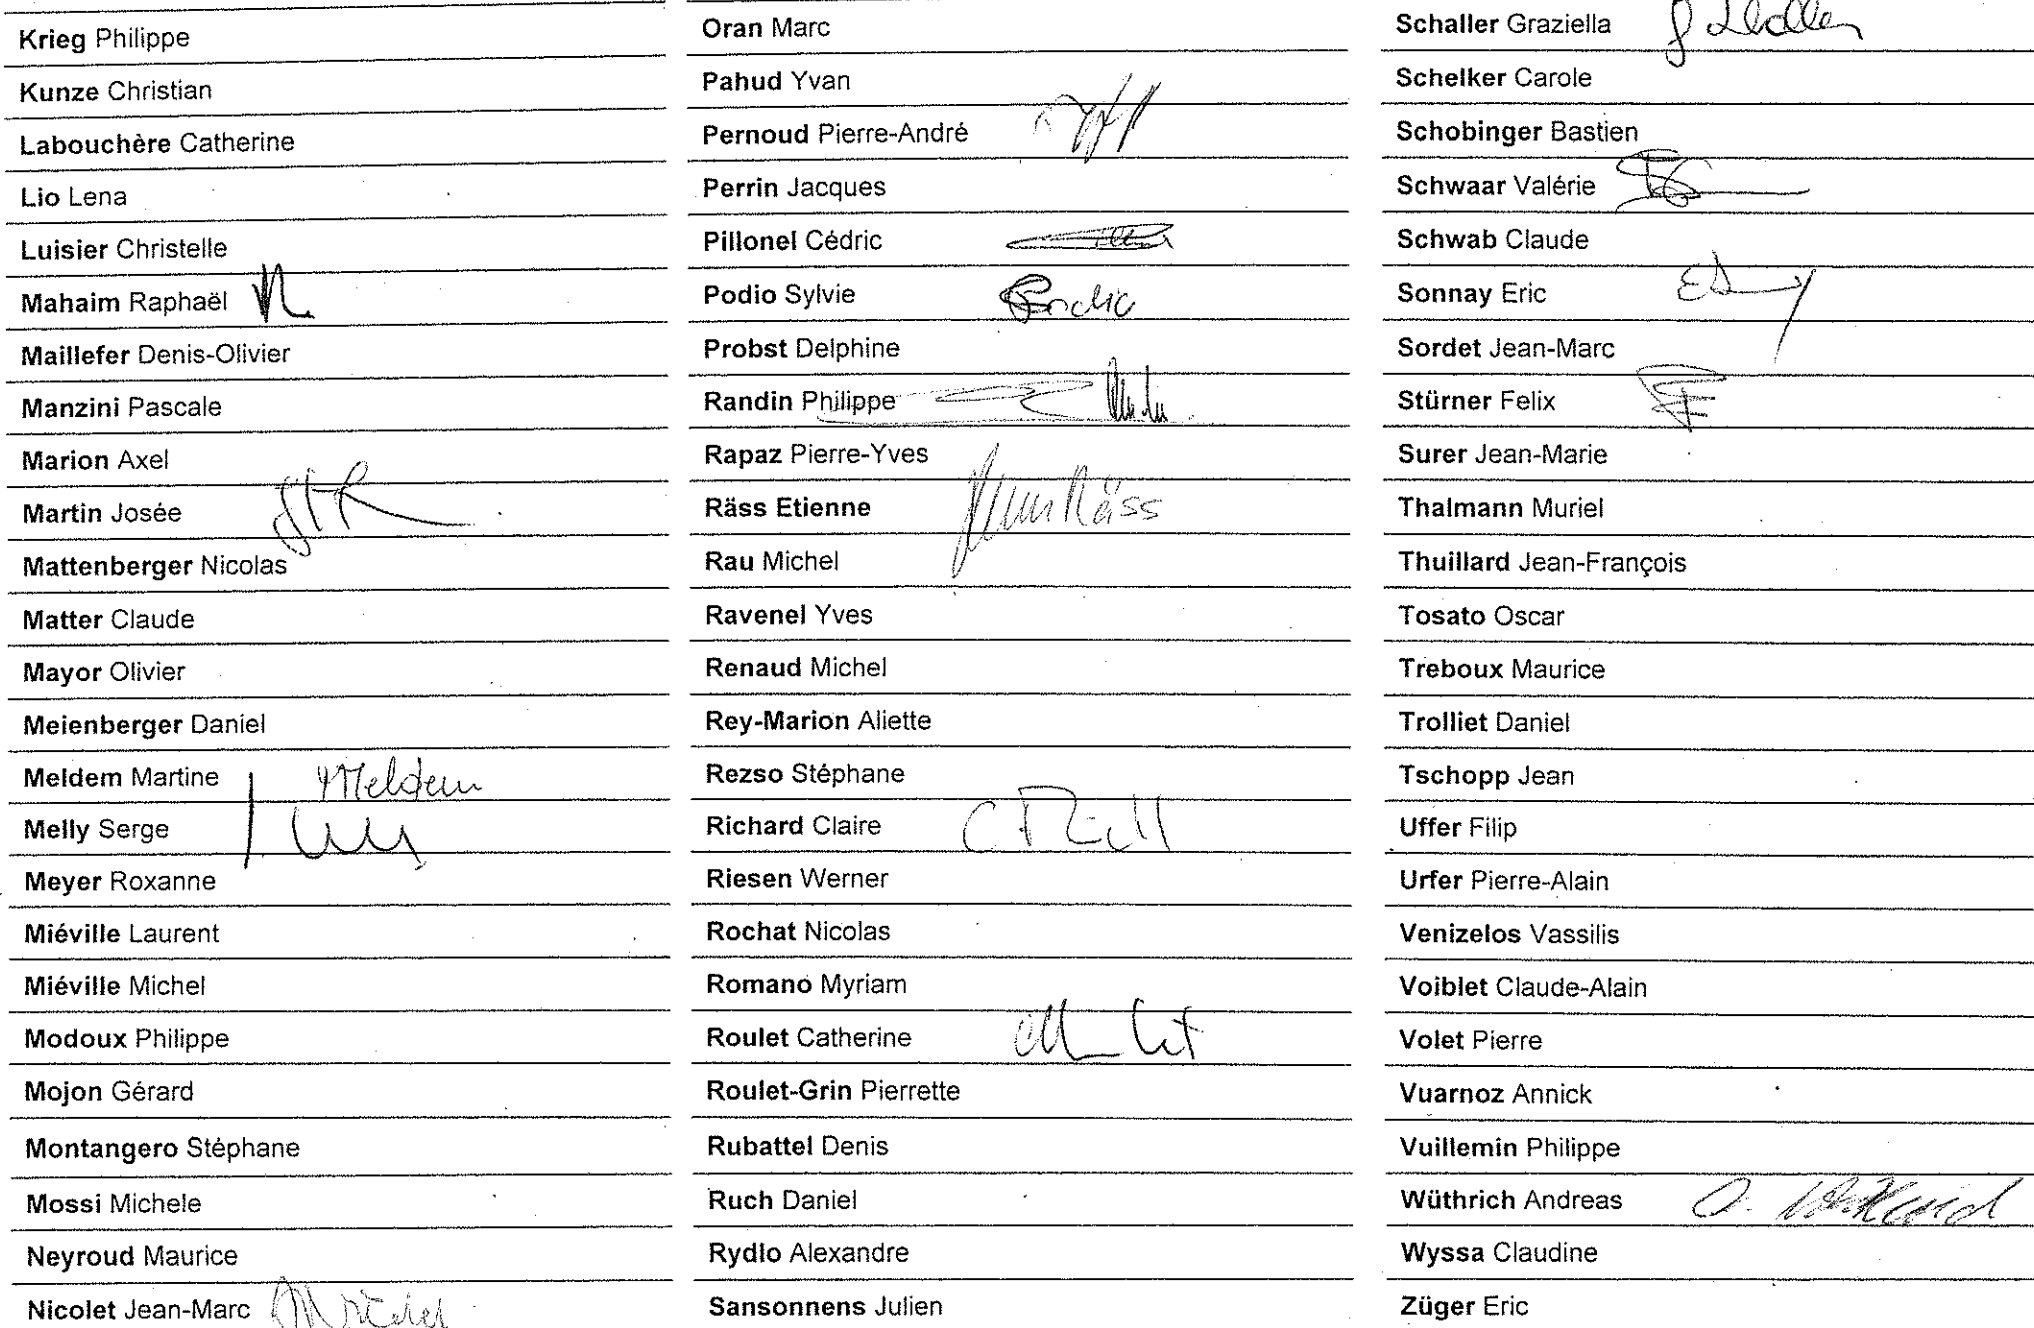 Krieg Philippe
Kunze Christian
Labouchère Catherine
Lio Lena
Luisier Christelle
Mahaim Raphaël
Maillefer Denis-Olivier
Manzini Pascale
Marion Axel
Martin Josée
Mattenberger Nicolas
Matter Claude
Mayor Olivier
Meienberger Daniel
Meldem Martine Meldem
Melly Serge
Meyer Roxanne
Miéville Laurent
Miéville Michel
Modoux Philippe
Mojon Gérard
Montangero Stéphane
Mossi Michele
Neyroud Maurice
Nicolet Jean-Marc
Oran Marc
Pahud Yvan
Pernoud Pierre-André
Perrin Jacques
Pillonel Cédric
Podio Sylvie
Probst Delphine
Randin Philippe
Rapaz Pierre-Yves
Räss Etienne Räss
Rau Michel
Ravenel Yves
Renaud Michel
Rey-Marion Aliette
Rezso Stéphane
Richard Claire
Riesen Werner
Rochat Nicolas
Romano Myriam
Roulet Catherine
Roulet-Grin Pierrette
Rubattel Denis
Ruch Daniel
Rydlo Alexandre
Sansonnens Julien
Schaller Graziella
Schelker Carole
Schobinger Bastien
Schwaar Valérie
Schwab Claude
Sonnay Eric
Sordet Jean-Marc
Stürner Felix
Surer Jean-Marie
Thalmann Muriel
Thuillard Jean-François
Tosato Oscar
Treboux Maurice
Trolliet Daniel
Tschopp Jean
Uffer Filip
Urfer Pierre-Alain
Venizelos Vassilis
Voiblet Claude-Alain
Volet Pierre
Vuarnoz Annick
Vuillemin Philippe
Wüthrich Andreas
Wyssa Claudine
Züger Eric